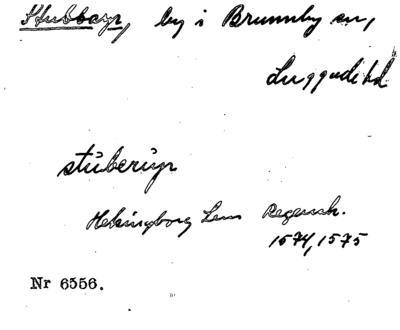 Stubbaryr, by i Brunnby sn,
Luggude hd
stüberüyr
Helsingborg Lens Regensk.
1574, 1575
Nr 6556.